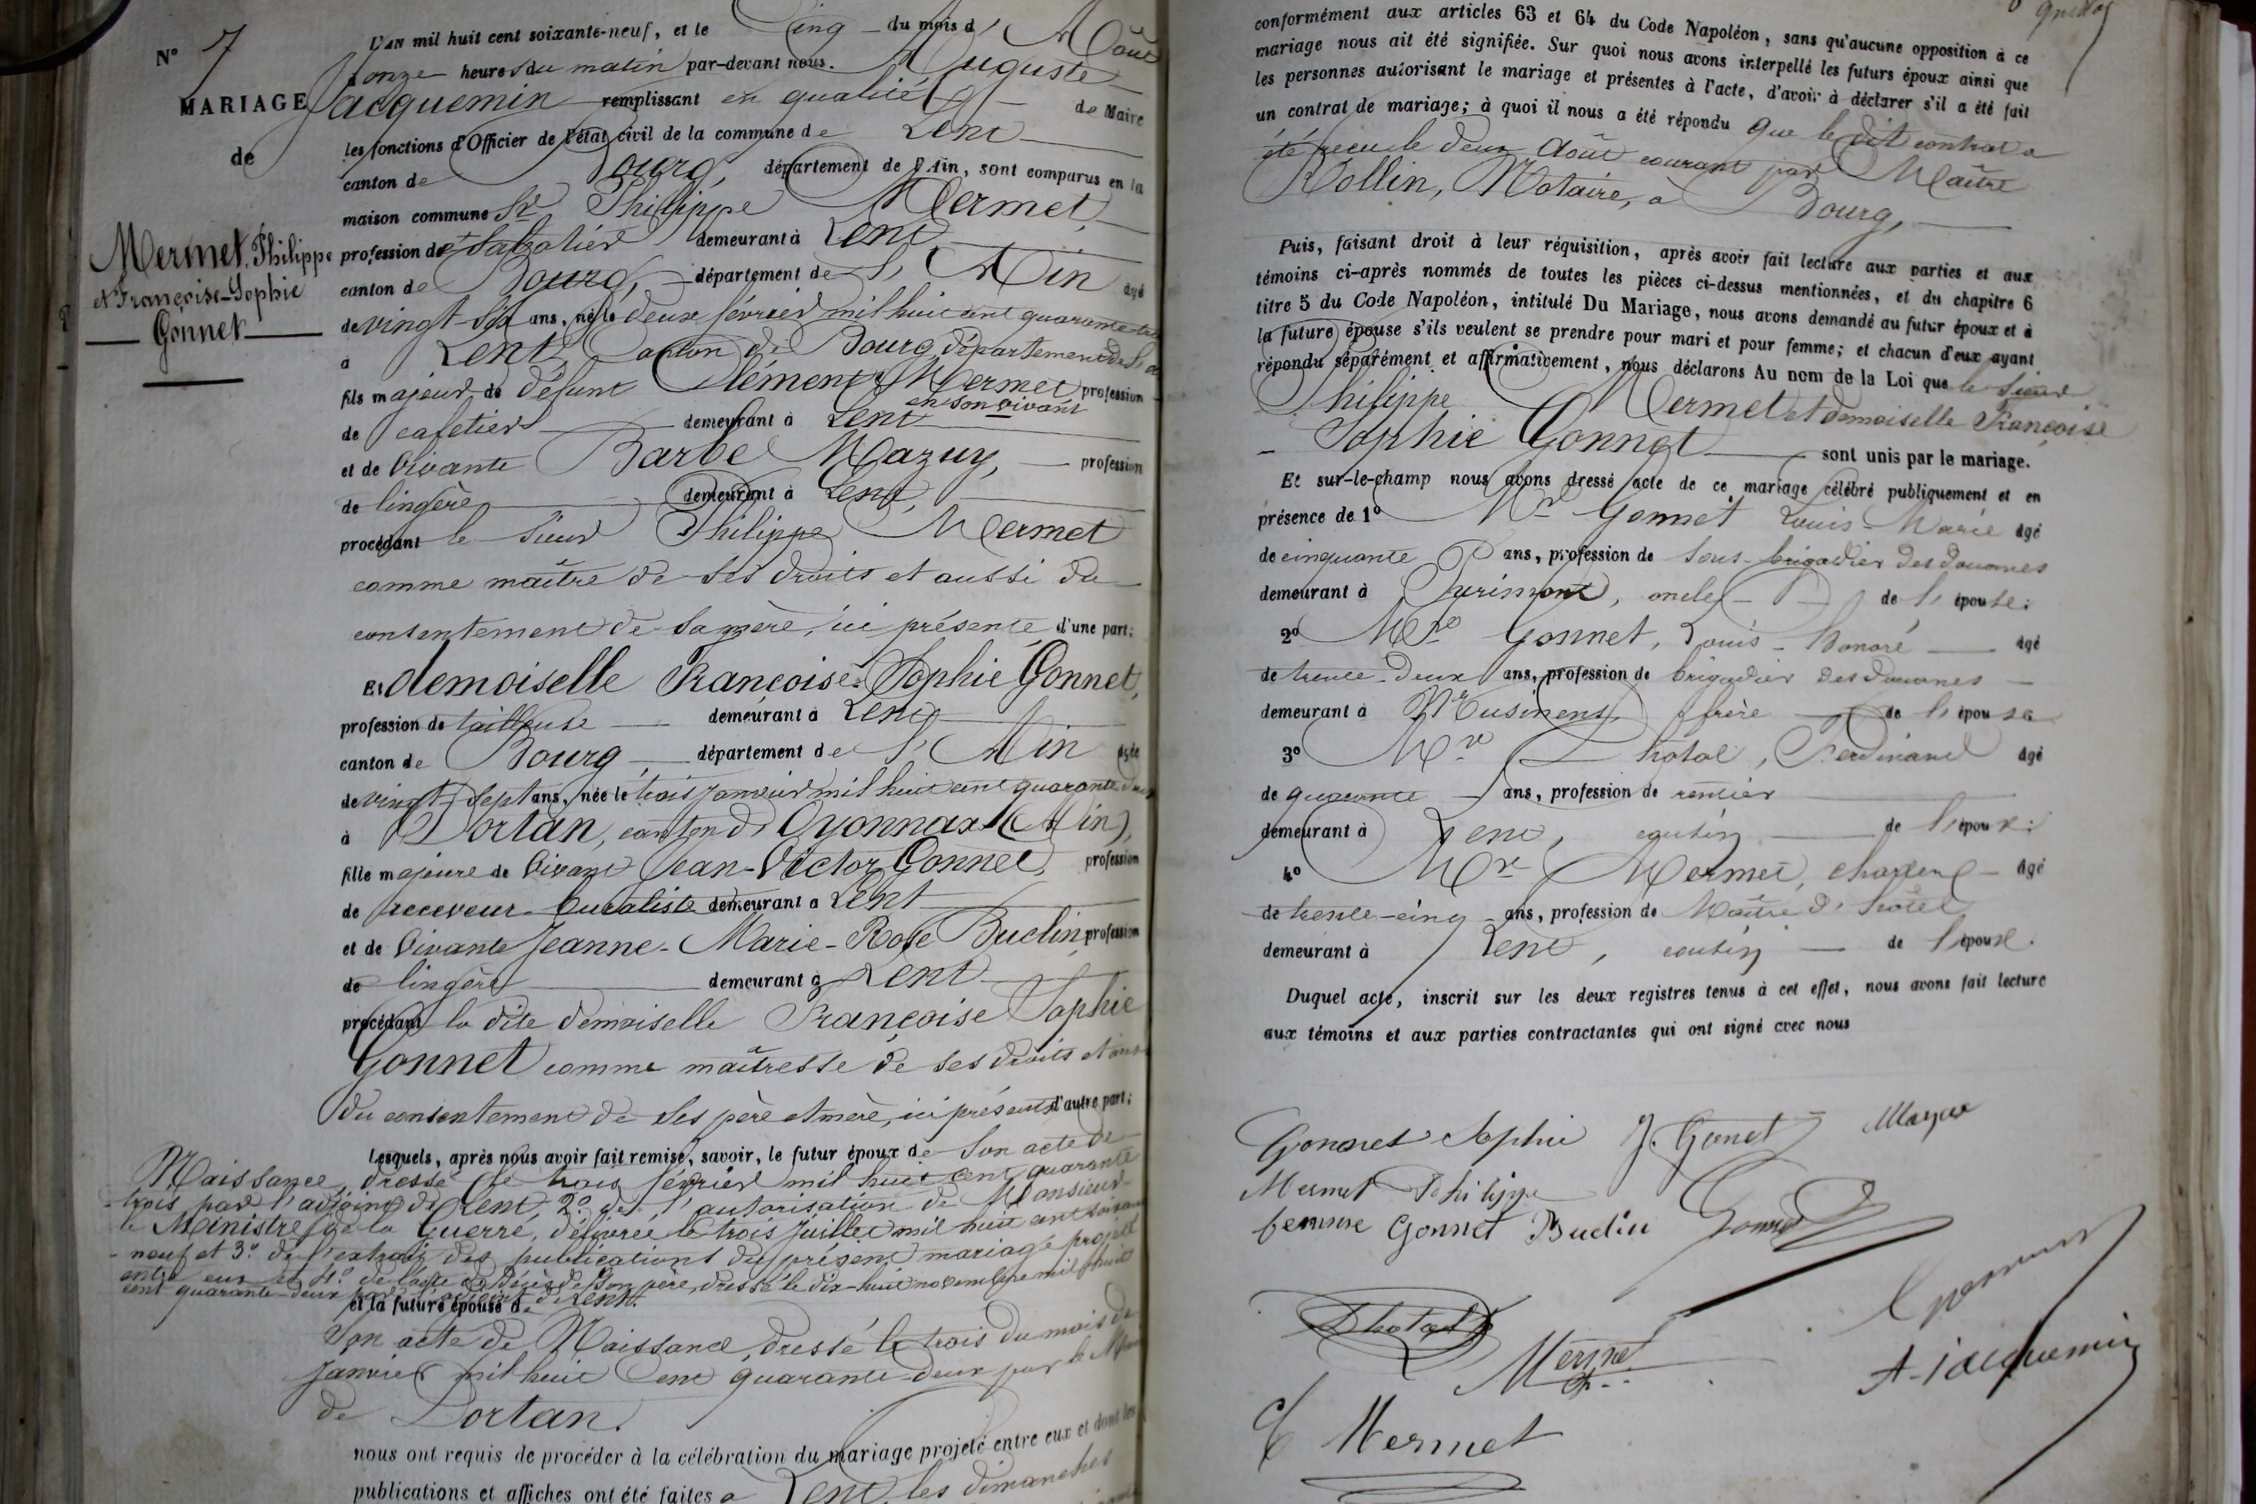 N° 7
MARIAGE
de
Mermet, Philippe
et Françoise-Sophie
Gonnet
L'an mil huit cent soixante-neuf, et le Cinq du mois d'Août
à onze heures du matin par-devant nous. Auguste
Jacquemin remplissant en qualité de Maire
les fonctions d'Officier de l'état civil de la commune de Lent
canton de Bourg, département de l'Ain, sont comparus en la
maison commune Sr Philippe Mermet,
profession de sabotier demeurant à Lent
canton de Bourg, département de l'Ain âgé
de vingt-six ans, né le deux février mil huit cent quarante-trois
à Lent, canton de Bourg, département de l'Ain
fils majeur de défunt Clément Mermet profession
en son vivant
de cafetier demeurant à Lent
et de vivante Barbe Mazuy, profession
de lingère demeurant à Lent,
procédant le sieur Philippe Mermet
comme maître de ses droits et aussi du
consentement de sa mère, ici présente d'une part;
Et demoiselle Françoise-Sophie Gonnet,
profession de tailleuse demeurant à Lent
canton de Bourg, département de l'Ain âgée
de vingt-sept ans, née le trois janvier mil huit cent quarante-deux
à Dortan, canton d'Oyonnax (Ain),
fille majeure de vivant Jean-Victor Gonnet, profession
de receveur-buraliste demeurant à Lent
et de vivante Jeanne-Marie-Rose Buclin, profession
de lingère demeurant à Lent
procédant la dite demoiselle Françoise Sophie
Gonnet comme maîtresse de ses droits et aussi
du consentement de ses père et mère, ici présents d'autre part;
Lesquels, après nous avoir fait remise, savoir, le futur époux de son acte de
Naissance, dressé le trois février mil huit cent quarante
trois par l'adjoint de Lent, 2° de l'autorisation de Monsieur
le Ministre de la Guerre, délivrée le trois juillet mil huit cent soixante
neuf et 3° de l'extrait des publications du présent mariage projeté
entre eux et 4° de l'acte de décès de son père, dressé le dix-huit novembre mil huit
cent quarante-deux par l'adjoint de Lent.
et la future épouse de
son acte de Naissance, dressé le trois du mois de
janvier mil huit cent quarante-deux par le Maire
de Dortan.
nous ont requis de procéder à la célébration du mariage projeté entre eux et dont les
publications et affiches ont été faites à Lent, les dimanches
conformément aux articles 63 et 64 du Code Napoléon, sans qu'aucune opposition à ce
mariage nous ait été signifiée. Sur quoi nous avons interpellé les futurs époux ainsi que
les personnes autorisant le mariage et présentes à l'acte, d'avoir à déclarer s'il a été fait
un contrat de mariage; à quoi il nous a été répondu que le dit contrat a
été reçu le deux août courant par Maître
Rollin, Notaire, à Bourg,
Puis, faisant droit à leur réquisition, après avoir fait lecture aux parties et aux
témoins ci-après nommés de toutes les pièces ci-dessus mentionnées, et du chapitre 6
titre 5 du Code Napoléon, intitulé Du Mariage, nous avons demandé au futur époux et à
la future épouse s'ils veulent se prendre pour mari et pour femme; et chacun d'eux ayant
répondu séparément et affirmativement, nous déclarons Au nom de la Loi que le sieur
Philippe Mermet et demoiselle Françoise
Sophie Gonnet sont unis par le mariage.
Et sur-le-champ nous avons dressé acte de ce mariage célébré publiquement et en
présence de 1° Mr Gonnet Louis-Marie âgé
de cinquante ans, profession de sous-brigadier des douanes
demeurant à Purimont, oncle de l'épouse;
2° Mr Gonnet, Louis-Honoré âgé
de trente-deux ans, profession de brigadier des douanes
demeurant à Musinens, frère de l'épouse
3° Mr Lhotal, Ferdinand âgé
de quarante ans, profession de rentier
demeurant à Lent, cousin de l'époux;
4° Mr Mermet, Charles âgé
de trente-cinq ans, profession de Maître d'hôtel
demeurant à Lent, cousin de l'époux.
Duquel acte, inscrit sur les deux registres tenus à cet effet, nous avons fait lecture
aux témoins et aux parties contractantes qui ont signé avec nous
Gonnet Sophie J. Gonet
Mermet Philippe
femme Gonnet Buclin Gonnet
Lhotal
Mermet
A. Jacquemin
Mermet